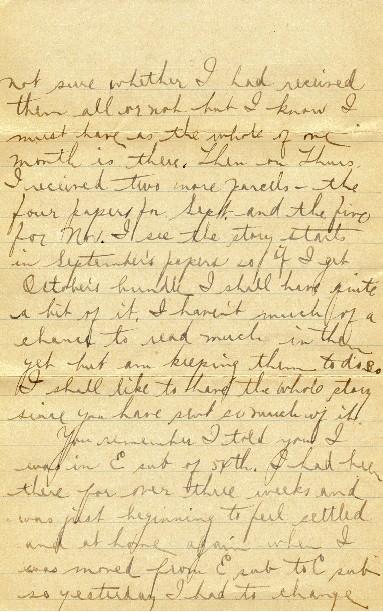 not sure whether I had received
them all or not but I know I
must have as the whole of one
month is there. Then on Thurs.
I received two more parcels - the
four papers for Sept. and the five
for Nov. I see the story starts
in September's papers so if I get
October's bundle I shall have quite
a bit of it. I haven't much of a
chance to read much in them
yet but am keeping them to do so
I shall like to have the whole story
since you have sent so much of it.
You remember I told you I
was in E sub of 58th. I had been
there for over three weeks and
was just beginning to feel settled
and at home again when I
was moved from E sub to sub
so yesterday I had to change